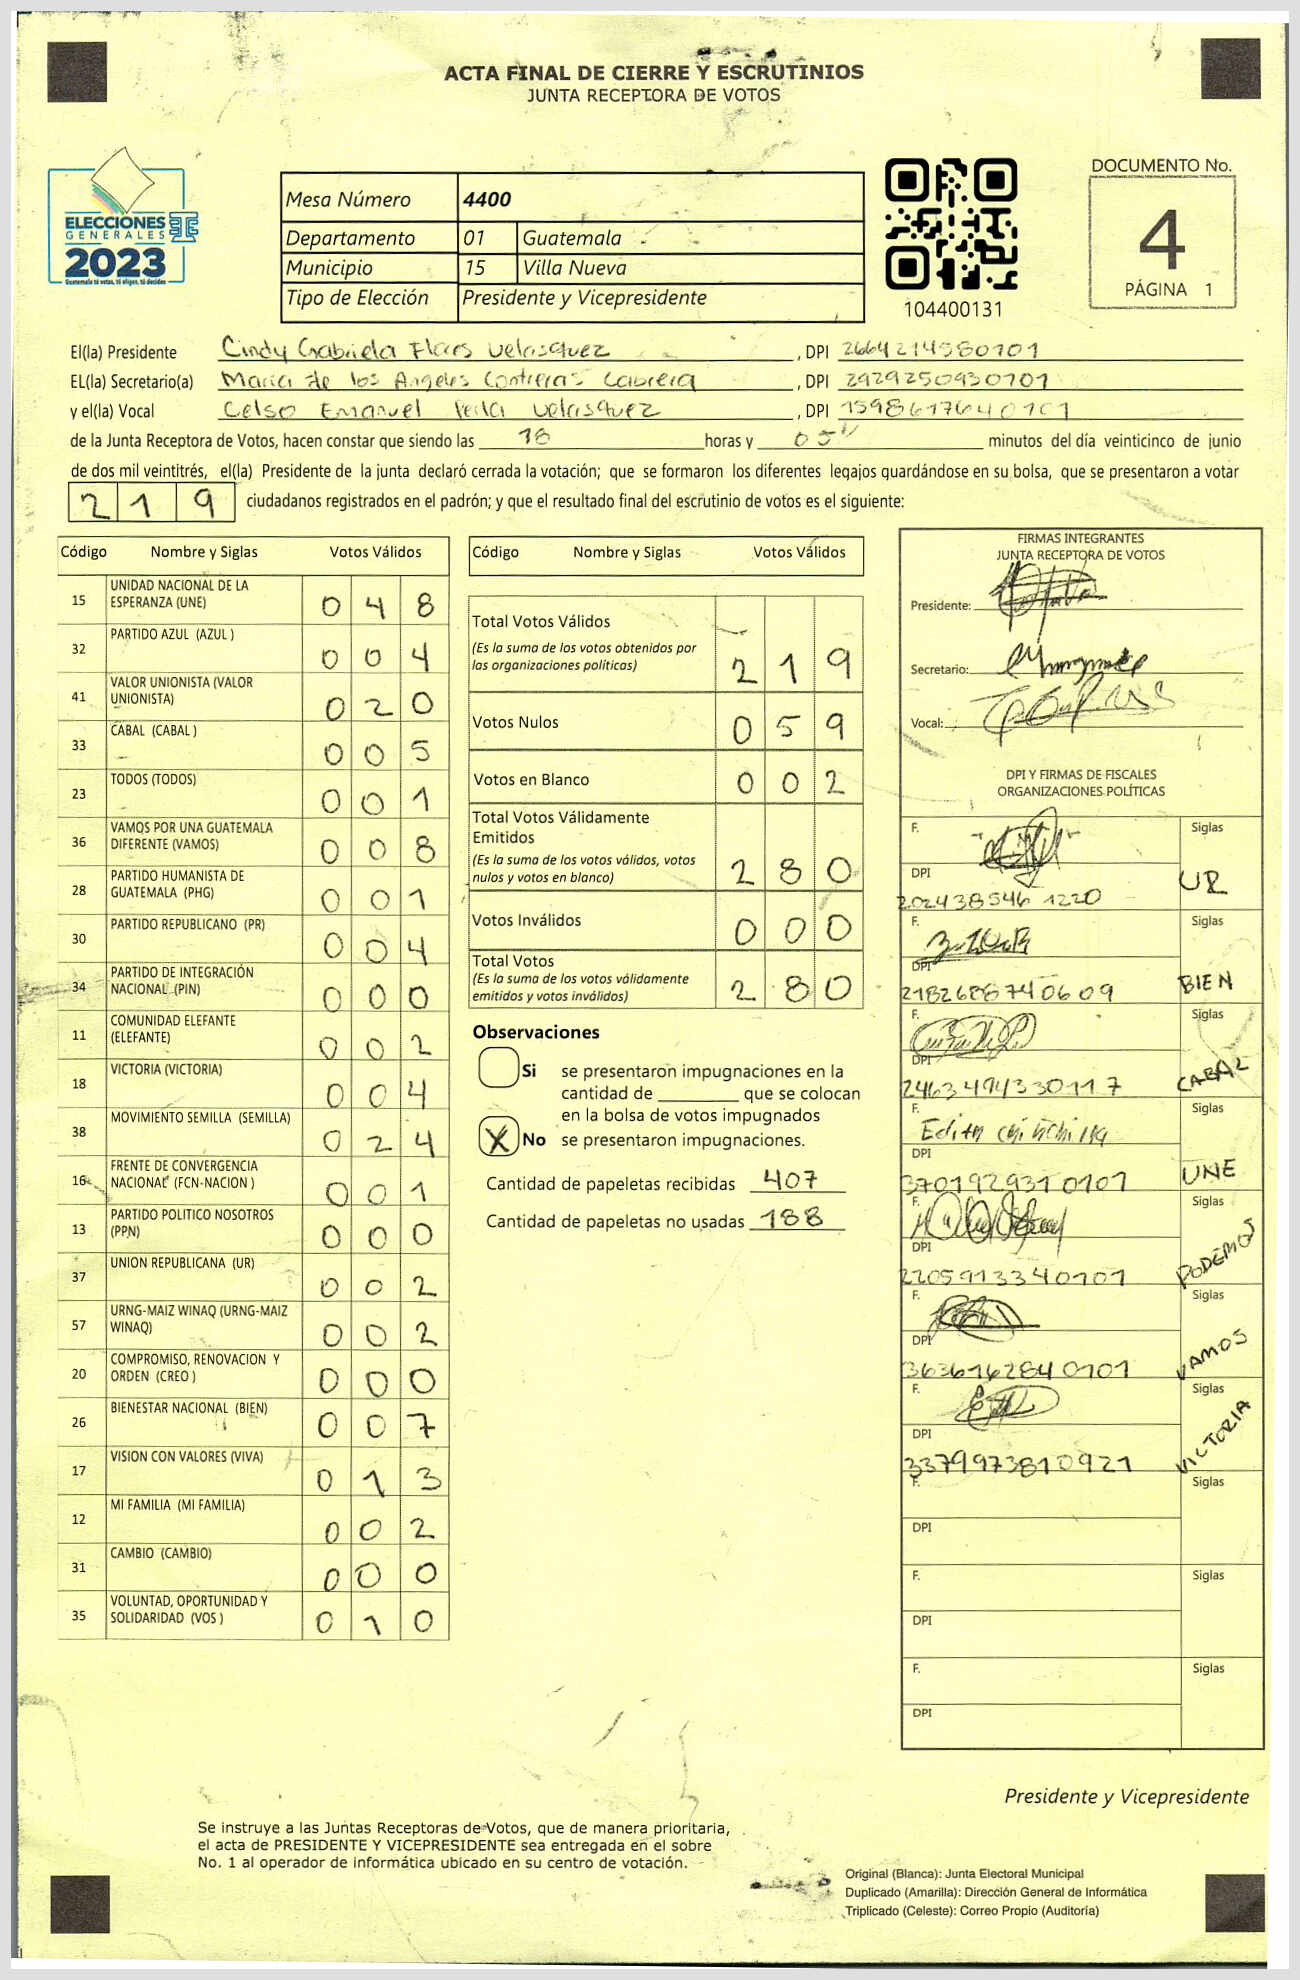 ACTA FINAL DE CIERRE Y ESCRUTINIOS
JUNTA RECEPTORA DE VOTOS
ELECCIONES
GENERALES
2023
Guatemala tú votas, tú eliges, tú decides
Mesa Número 4400
Departamento 01 Guatemala
Municipio 15 Villa Nueva
Tipo de Elección Presidente y Vicepresidente
104400131
DOCUMENTO No.
4
PÁGINA 1
El(la) Presidente Cindy Gabriela Flores Velasquez , DPI 2664214580101
EL(la) Secretario(a) Maria de los Angeles Contreras Cabrera , DPI 2929250930101
y el(la) Vocal Celso Emanuel Velasquez , DPI 1598617640101
de la Junta Receptora de Votos, hacen constar que siendo las 18 horas y 05 minutos del día veinticinco de junio
de dos mil veintitrés, el(la) Presidente de la junta declaró cerrada la votación; que se formaron los diferentes legajos guardándose en su bolsa, que se presentaron a votar
219 ciudadanos registrados en el padrón; y que el resultado final del escrutinio de votos es el siguiente:
Código Nombre y Siglas Votos Válidos
15 UNIDAD NACIONAL DE LA ESPERANZA (UNE) 048
32 PARTIDO AZUL (AZUL ) 004
41 VALOR UNIONISTA (VALOR UNIONISTA) 020
33 CABAL (CABAL ) 005
23 TODOS (TODOS) 001
36 VAMOS POR UNA GUATEMALA DIFERENTE (VAMOS) 008
28 PARTIDO HUMANISTA DE GUATEMALA (PHG) 001
30 PARTIDO REPUBLICANO (PR) 004
34 PARTIDO DE INTEGRACIÓN NACIONAL (PIN) 000
11 COMUNIDAD ELEFANTE (ELEFANTE) 002
18 VICTORIA (VICTORIA) 004
38 MOVIMIENTO SEMILLA (SEMILLA) 024
16 FRENTE DE CONVERGENCIA NACIONAL (FCN-NACION ) 001
13 PARTIDO POLITICO NOSOTROS (PPN) 000
37 UNION REPUBLICANA (UR) 002
57 URNG-MAIZ WINAQ (URNG-MAIZ WINAQ) 002
20 COMPROMISO, RENOVACION Y ORDEN (CREO ) 000
26 BIENESTAR NACIONAL (BIEN) 007
17 VISION CON VALORES (VIVA) 013
12 MI FAMILIA (MI FAMILIA) 002
31 CAMBIO (CAMBIO) 000
35 VOLUNTAD, OPORTUNIDAD Y SOLIDARIDAD (VOS ) 010
Código Nombre y Siglas Votos Válidos
Total Votos Válidos 219
(Es la suma de los votos obtenidos por
las organizaciones políticas)
Votos Nulos 059
Votos en Blanco 002
Total Votos Válidamente
Emitidos 280
(Es la suma de los votos válidos, votos
nulos y votos en blanco)
Votos Inválidos 000
Total Votos 280
(Es la suma de los votos válidamente
emitidos y votos inválidos)
Observaciones
Si se presentaron impugnaciones en la
cantidad de ________ que se colocan
en la bolsa de votos impugnados
X No se presentaron impugnaciones.
Cantidad de papeletas recibidas 407
Cantidad de papeletas no usadas 188
FIRMAS INTEGRANTES
JUNTA RECEPTORA DE VOTOS
Presidente:
Secretario:
Vocal:
DPI Y FIRMAS DE FISCALES
ORGANIZACIONES POLÍTICAS
F. Siglas
DPI 202438546 1220 UR
F. Siglas
DPI 2182688740609 BIEN
F. Siglas
DPI CABAL
F. Edith Chinchilla Siglas
DPI 3701929310101 UNE
F. Siglas
DPI 2205913340101 PODEMOS
F. Siglas
DPI 3636162840101 VAMOS
F. Siglas
DPI 3379973810921 VICTORIA
F. Siglas
DPI
F. Siglas
DPI
F. Siglas
DPI
Presidente y Vicepresidente
Se instruye a las Juntas Receptoras de Votos, que de manera prioritaria,
el acta de PRESIDENTE Y VICEPRESIDENTE sea entregada en el sobre
No. 1 al operador de informática ubicado en su centro de votación.
Original (Blanca): Junta Electoral Municipal
Duplicado (Amarilla): Dirección General de Informática
Triplicado (Celeste): Correo Propio (Auditoría)